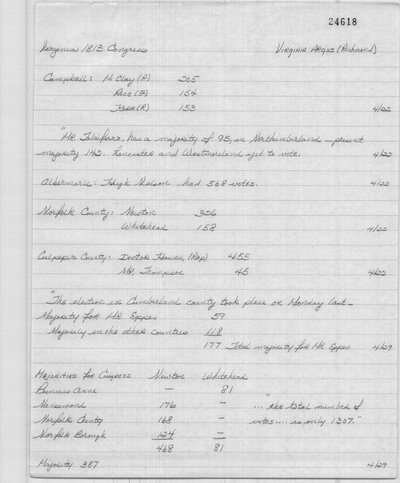 24618
Virginia 1813 Congress Virginia Argus (Richmond)
Campbell: M. Clay (R) 205
Rice (F) 154
Kerr (R) 153 4/22
"Mr. Taliaferro, has a majority of 95, in Northumberland - present
majority 142. Lancaster and Westmoreland yet to vote. 4/22
Albermarle: Hugh Nelson had 568 votes. 4/22
Norfolk County: Newton 326
Whitehead 158 4/22
Culpeper County: Doctor Hawes, (Rep) 455
Mr. Thompson 45 4/22
"The election in Cumberland county took place on Monday last -
Majority for Mr Eppes 59
Majority in the other counties 118
177 Total majority for Mr Eppes 4/29
Majorities for Congress Newton Whitehead
Princess Anne — 81
Nansemond 176 — ... "the total number of
Norfolk County 168 — votes .... is only 1307."
Norfolk Borough 124 —
468 81
Majority 387 4/29